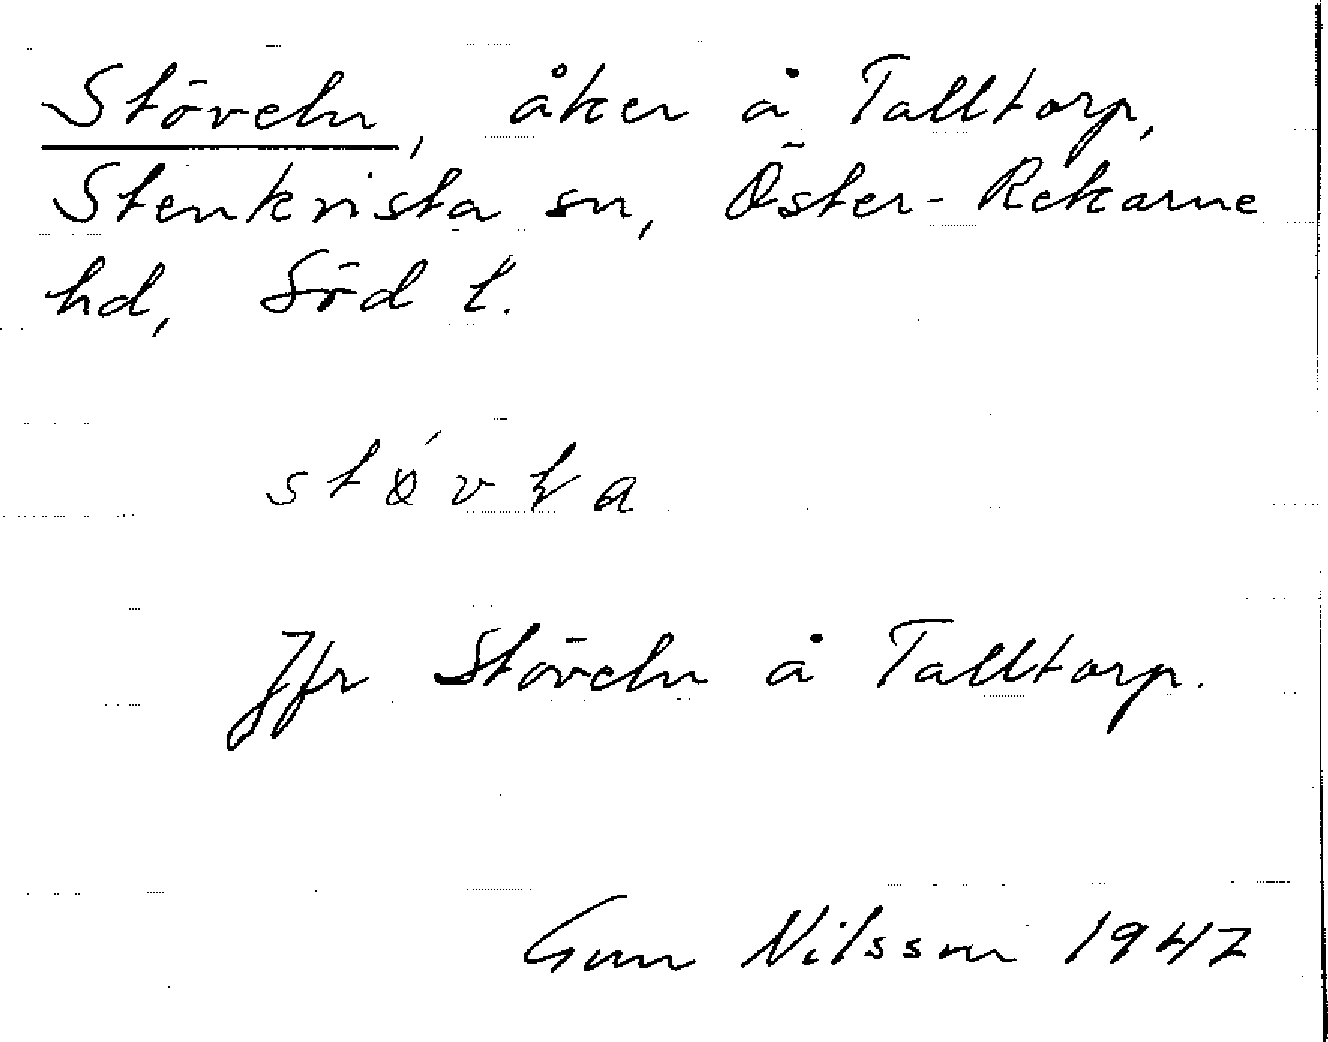 Stöveln, åker å Talltorp,
Stenkvista sn, Öster-Rekarne
hd, Söd l.
Jfr Stöveln å Talltorp.
Gun Nilsson 1947